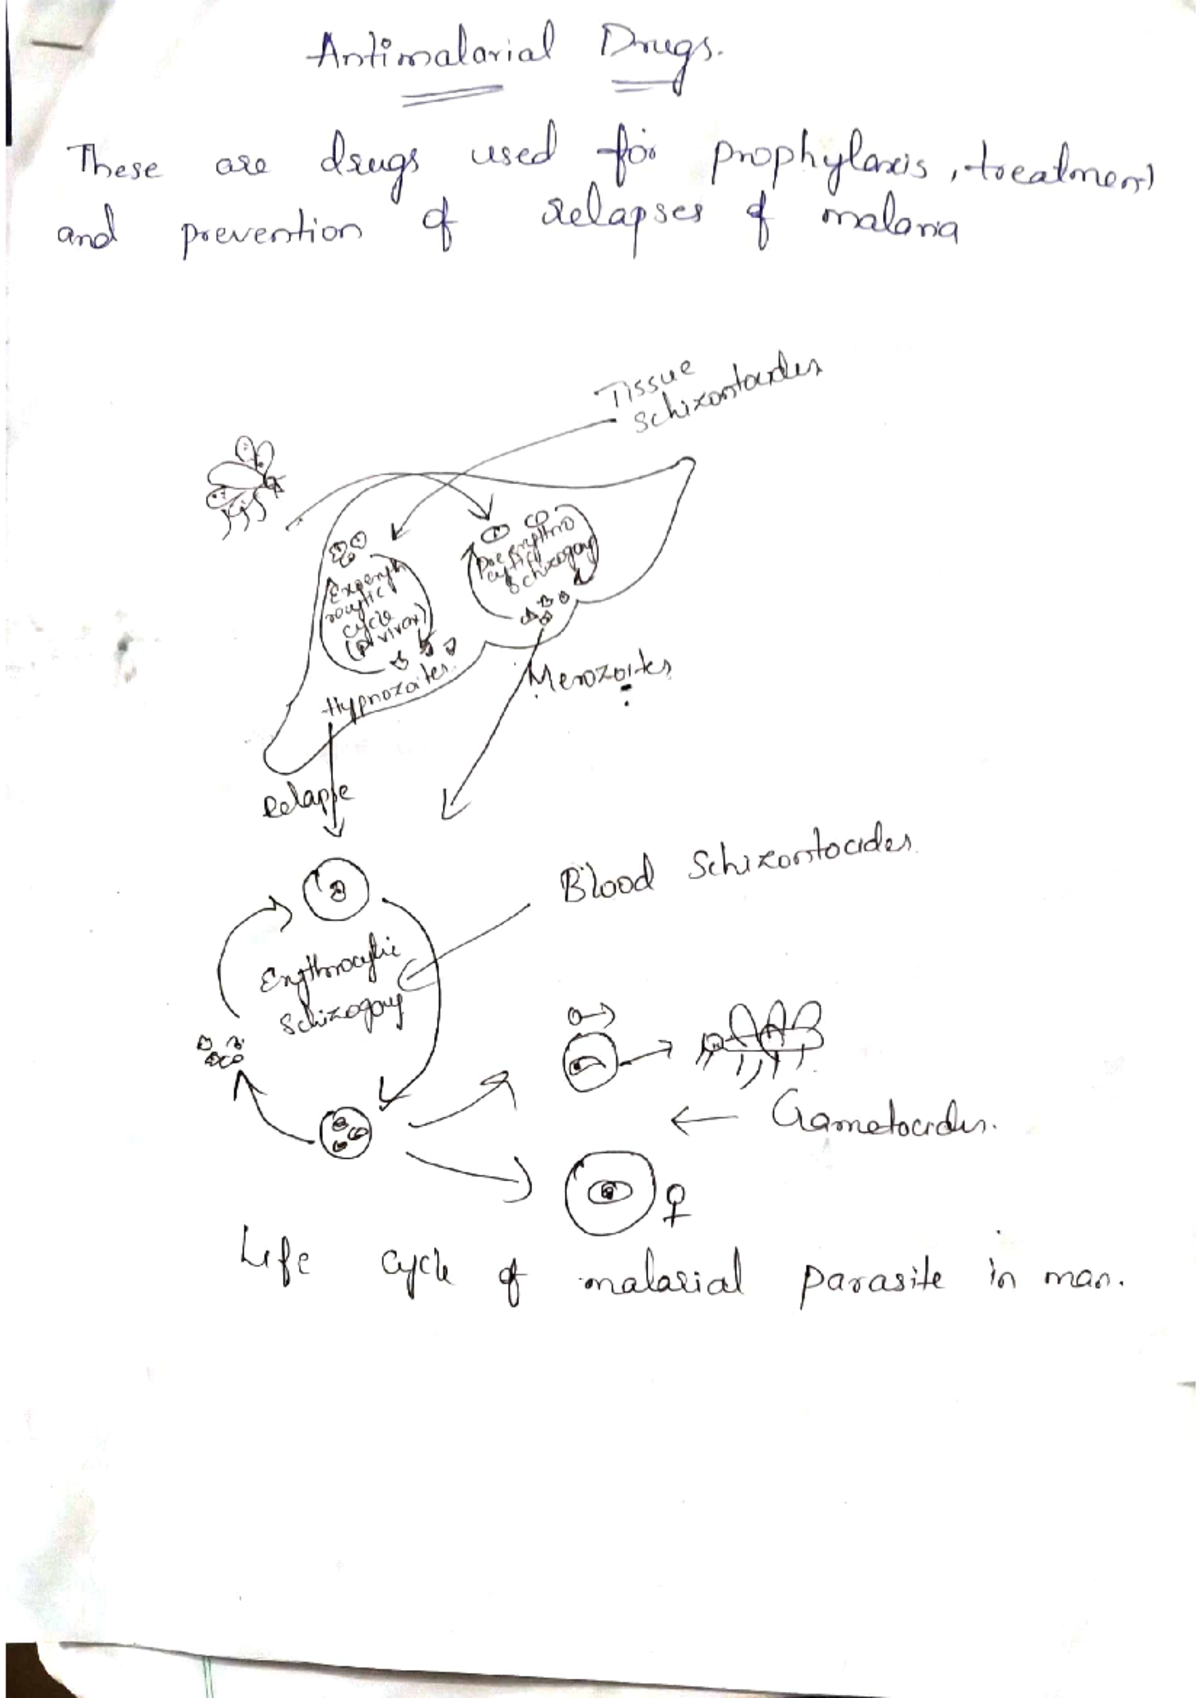 Antimalarial Drugs.
These are drugs used for prophylaxis, treatment
and prevention of relapses of malaria
Tissue
schizontocides
Preerythro
cytic
schizogony
Exoeryth
rocytic
cycle
(P. vivax)
Hypnozoites.
Merozoites
Relapse
Blood Schizontocides.
Erythrocytic
Schizogony
Gametocides.
♀
Life cycle of malarial parasite in man.